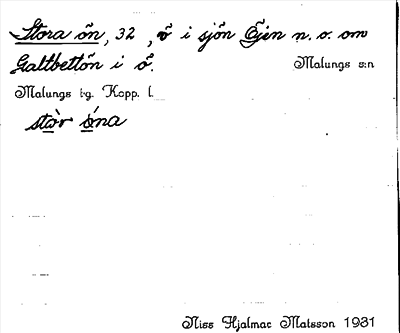 Stora ön, 32, ö i sjön Öjen n. o. om
Galtbettön i ö.
Malungs s:n
Malungs t-g. Kopp. l.
stòr ö́na
Nils Hjalmar Matsson 1931